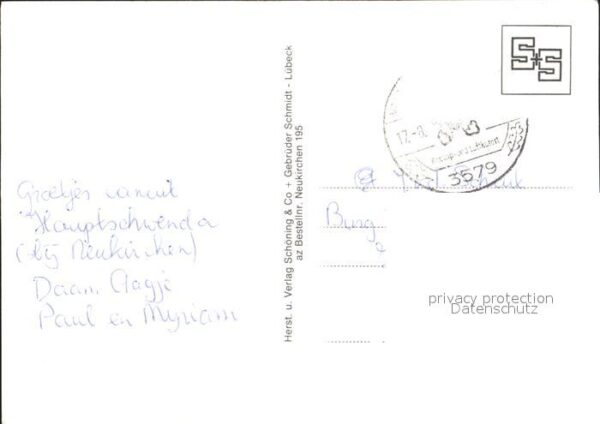 Groetjes vanuit
Hauptschwenda
(bij Neukirchen)
Daan, Aagje
Paul en Myriam
Herst. u. Verlag Schöning & Co + Gebrüder Schmidt - Lübeck
az Bestellnr. Neukirchen 195
S+S
17.-8.
3579
Burg
privacy protection
Datenschutz